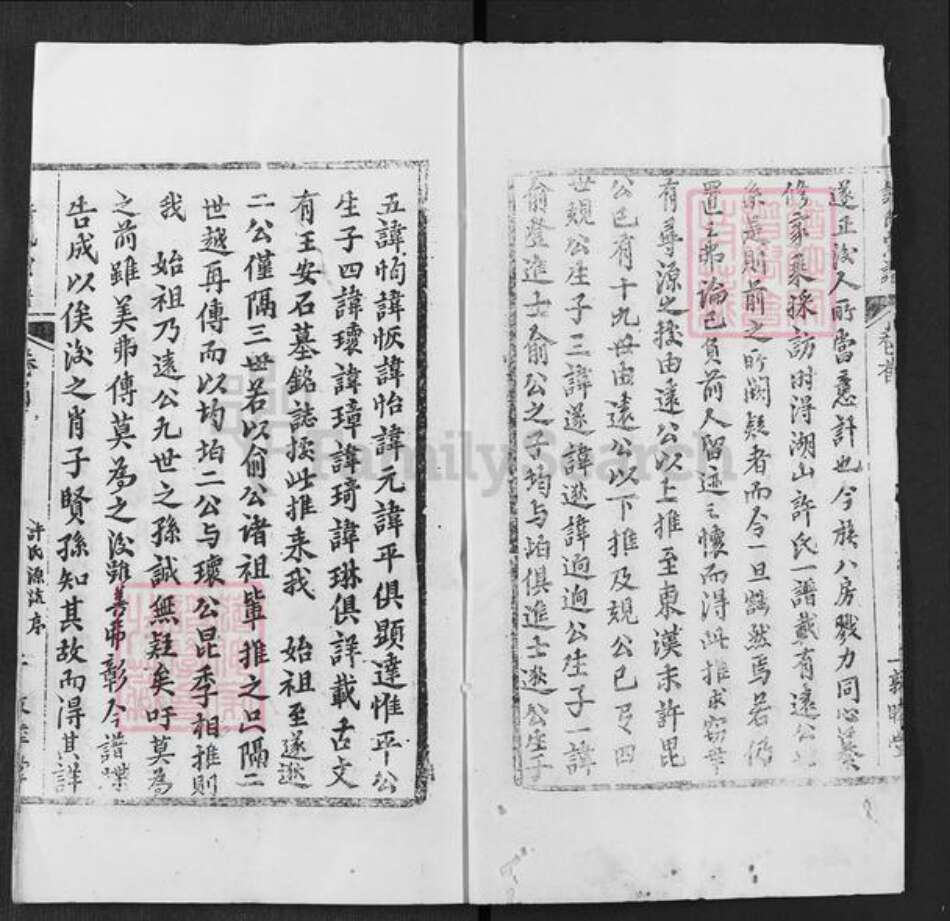 遂正後人所當急計也今族八房戮力同心纂
修家乘採訪時得湖山許氏一譜載有遠公
系是則前之所闕疑者而今一旦豁然焉若仍
置之弗論已負前人留迹之懷而得此推求窃幸
有尋源之按由遠公以上推至東漢末許毘
公已有十九世由遠公以下推及規公已有四
世規公生子三諱遂諱逖諱逈逈公生子一諱
俞登進士俞公之子均与垍俱進士逖公生子
五諱恂諱恢諱怡諱元諱平俱顕達惟平公
生子四諱瓌諱璋諱琦諱琳俱詳載古文
有王安石墓銘誌按此推来我 始祖至遂逖
二公僅隔三世若以俞公诸祖軰推之只隔二
世越再傳而以均垍二公与瓌公昆季相推則
我 始祖乃遠公九世之孫誠無疑矣吁莫為
之前雖美弗傳莫為之後雖善弗彰今譜牒
告成以俟後之肖子賢孫知其故而得其詳
許氏源流序
卷首
FamilySearch